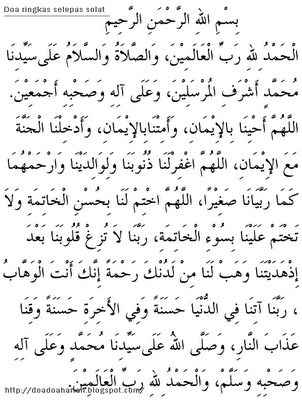 Doa ringkas selepas solat
بِسْمِ اللهِ الرَّحْمَنِ الرَّحِيمِ
الْحَمْدُ لِلهِ رَبِّ الْعَالَمِيْنَ، وَالصَّلَاةُ وَالسَّلَامُ عَلَى سَيِّدِنَا
مُحَمَّدٍ أَشْرَفِ الْمُرْسَلِيْنَ، وَعَلَى آلِهِ وَصَحْبِهِ أَجْمَعِيْنَ.
اللَّهُمَّ أَحْيِنَا بِالْإِيْمَانِ، وَأَمِتْنَابِالْإِيْمَانِ، وَأَدْخِلْنَا الْجَنَّةَ
مَعَ الْإِيْمَانِ، اللَّهُمَّ اغْفِرْلَنَا ذُنُوبَنَا وَلِوَالِدَيْنَا وَارْحَمْهُمَا
كَمَا رَبَّيَانَا صَغِيْرًا، اللَّهُمَّ اخْتِمْ لَنَا بِحُسْنِ الْخَاتِمَةِ وَلَا
تَخْتِمْ عَلَيْنَا بِسُوْءِ الْخَاتِمَةِ، رَبَّنَا لَا تُزِغْ قُلُوبَنَا بَعْدَ
إِذْهَدَيْتَنَا وَهَبْ لَنَا مِنْ لَدُنْكَ رَحْمَةً إِنَّكَ أَنْتَ الْوَهَّابُ
، رَبَّنَا آتِنَا فِي الدُّنْيَا حَسَنَةً وَفِي الْأَخِرَةِ حَسَنَةً وَقِنَا
عَذَابَ النَّارِ، وَصَلَّى اللهُ عَلَى سَيِّدِنَا مُحَمَّدٍ وَعَلَى آلِهِ
وَصَحْبِهِ وَسَلَّمْ، وَالْحَمْدُ لِلهِ رَبِّ الْعَالَمِيْنَ.
http://doadoaharian.blogspot.com/